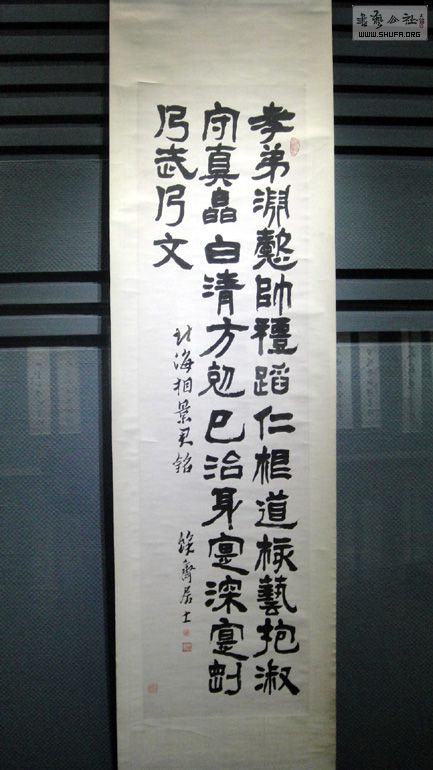 書藝公社
WWW.SHUFA.ORG
孝弟淵懿帥禮蹈仁根道核藝抱淑
守真皛白清方剋己治身寔深寔剛
乃武乃文
北海相景君銘
齋居士